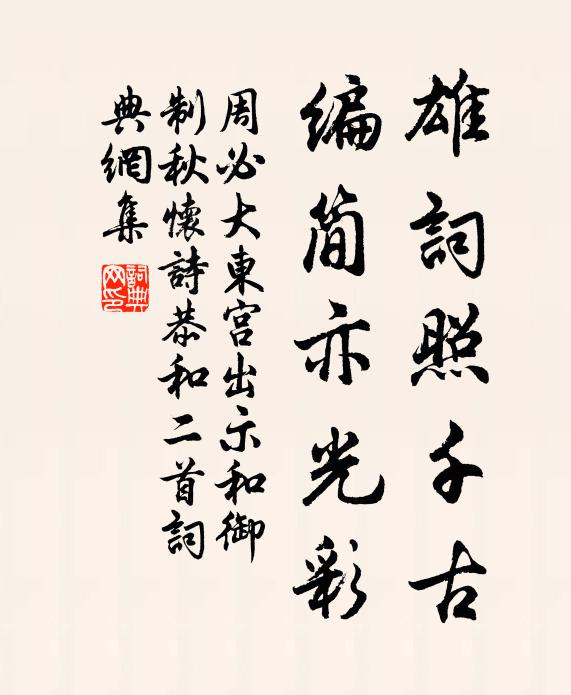 雄詞照千古
編简亦光彩
周必大東宮出示和御
制秋懷詩恭和二首詞
典網集
詞典网印